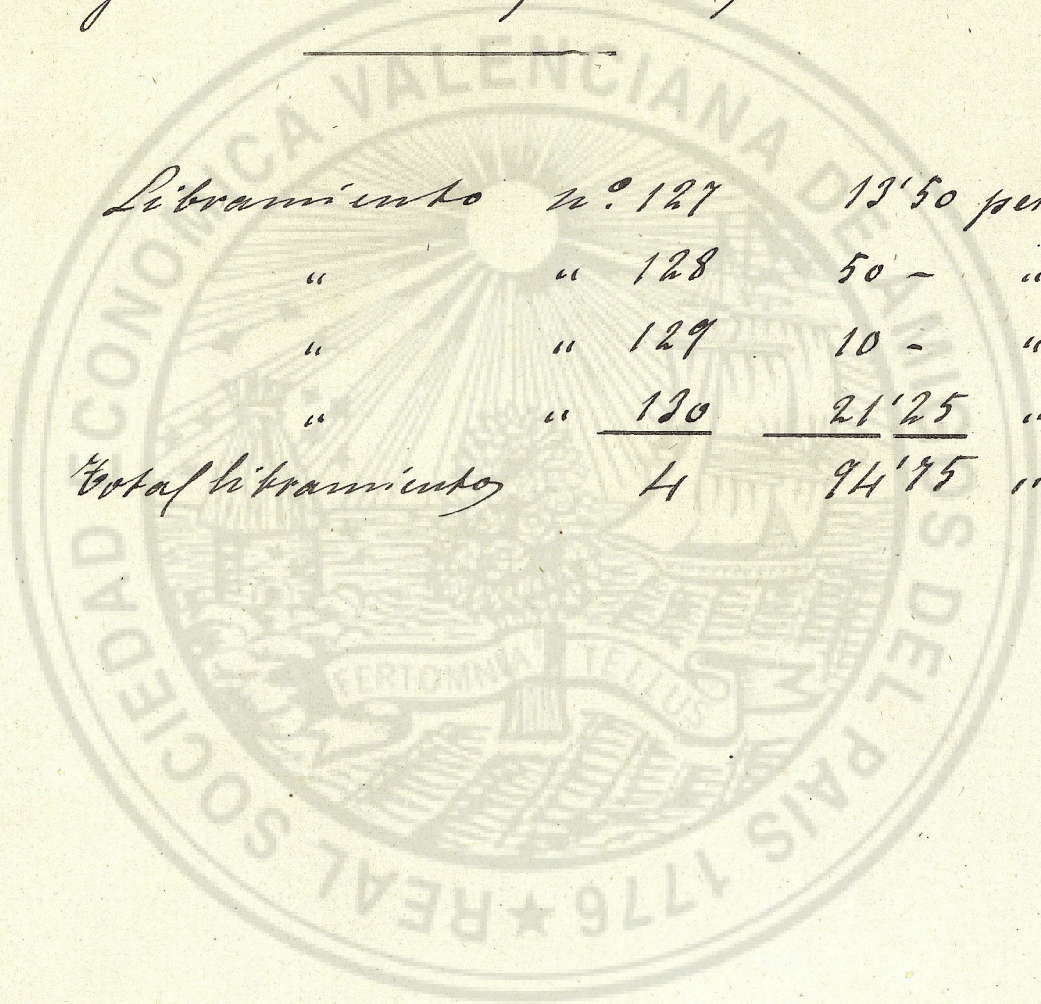 Libramiento n.º 127 13'50 pe
" " 128 50 - "
" " 129 10 - "
" " 130 21'25 "
Total libramientos 4 94'75 "
REAL SOCIEDAD ECONOMICA VALENCIANA DE AMIGOS DEL PAIS 1776 ★
FERT OMNIA TELLUS